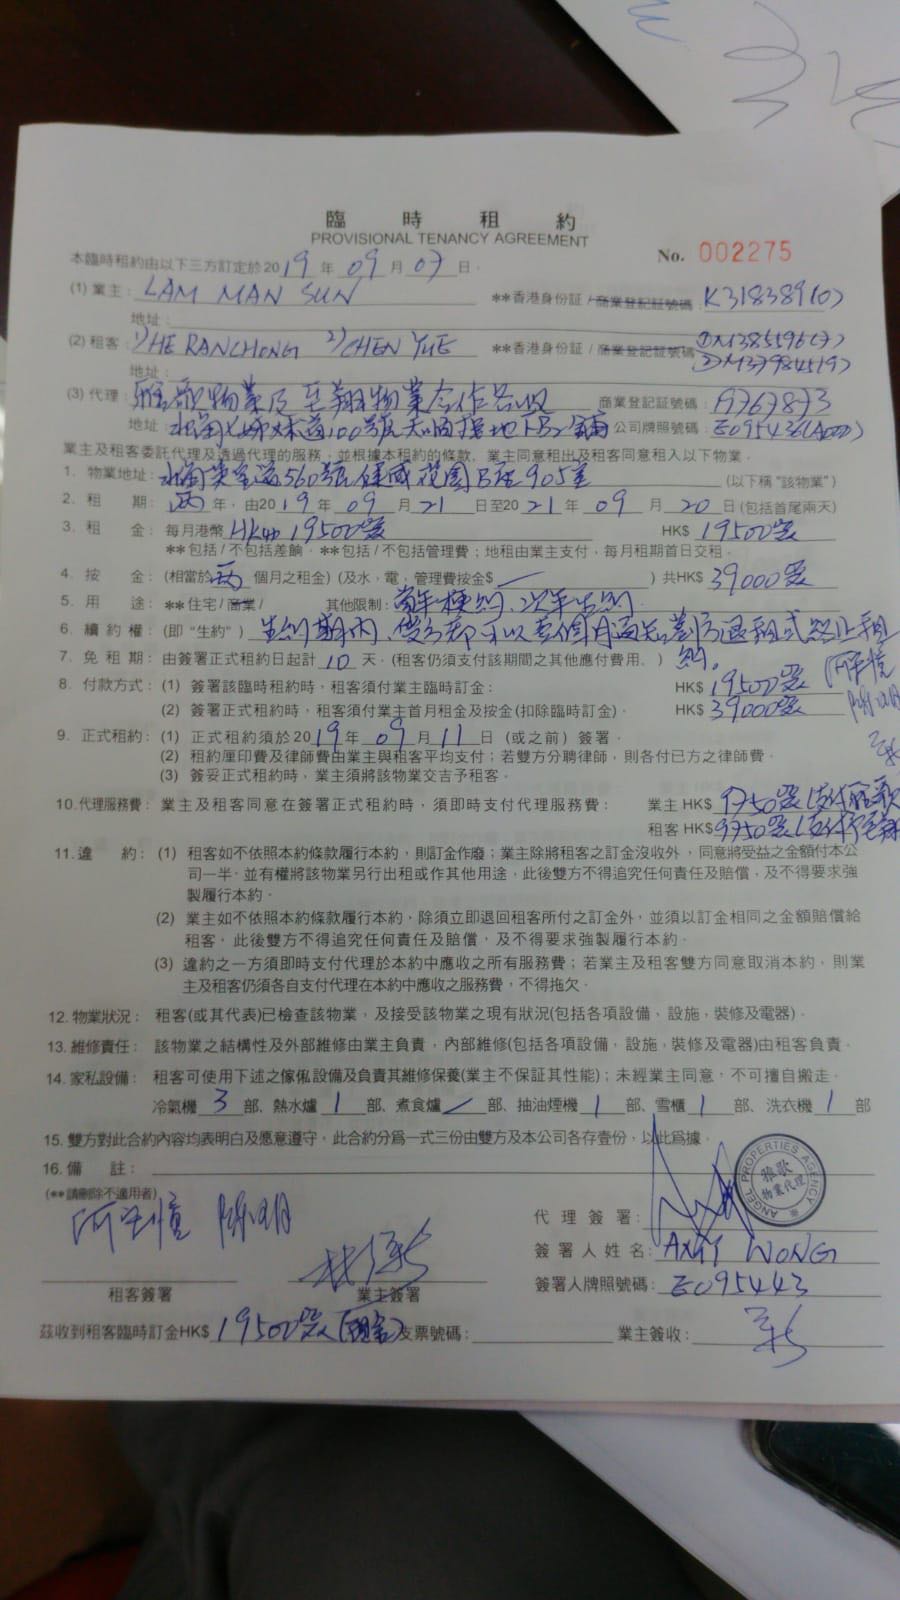 臨時租約
PROVISIONAL TENANCY AGREEMENT
No. 002275
本臨時租約由以下三方訂定於2019年09月07日。
(1) 業主: LAM MAN SUN **香港身份証/商業登記証號碼: K318389(0)
地址:
(2) 租客: 1) HE RANCHONG 2) CHEN YUE **香港身份証/商業登記証號碼 ① M385596(7)
地址: ② M379845(9)
(3) 代理: 雅歌物業及至翔物業合作各收 商業登記証號碼:
地址: 姊妹道100號 地下B2舖 公司牌照號碼: E095436
業主及租客委託代理及透過代理的服務,並根據本租約的條款,業主同意租出及租客同意租入以下物業。
1. 物業地址: 英皇道560號健威花園B座905室 (以下稱“該物業”)
2. 租期: 两年,由2019年09月21日至2021年09月20日(包括首尾兩天)
3. 租金: 每月港幣 HK$ 19500 HK$ 19500
**包括/不包括差餉,**包括/不包括管理費;地租由業主支付,每月租期首日交租。
4. 按金: (相當於两個月之租金) (及水,電,管理費按金$ — ) 共HK$ 39000
5. 用途: **住宅/商業/ 其他限制: 首年梗約,次年生約
6. 續約權: (即“生約”) 生約期內,雙方都可以壹個月通知對方退租或終止租約。
7. 免租期: 由簽署正式租約日起計10天。(租客仍須支付該期間之其他應付費用。)
8. 付款方式: (1) 簽署該臨時租約時,租客須付業主臨時訂金: HK$ 19500
(2) 簽署正式租約時,租客須付業主首月租金及按金(扣除臨時訂金)。 HK$ 39000
9. 正式租約: (1) 正式租約須於2019年09月11日(或之前)簽署。
(2) 租約厘印費及律師費由業主與租客平均支付;若雙方分聘律師,則各付已方之律師費。
(3) 簽妥正式租約時,業主須將該物業交吉予租客。
10. 代理服務費: 業主及租客同意在簽署正式租約時,須即時支付代理服務費: 業主 HK$ 9750
租客 HK$ 9750
11. 違約: (1) 租客如不依照本約條款履行本約,則訂金作廢;業主除將租客之訂金沒收外,同意將受益之金額付本公
司一半。並有權將該物業另行出租或作其他用途,此後雙方不得追究任何責任及賠償,及不得要求強
製履行本約。
(2) 業主如不依照本約條款履行本約,除須立即退回租客所付之訂金外,並須以訂金相同之金額賠償給
租客,此後雙方不得追究任何責任及賠償,及不得要求強製履行本約。
(3) 違約之一方須即時支付代理於本約中應收之所有服務費;若業主及租客雙方同意取消本約,則業
主及租客仍須各自支付代理在本約中應收之服務費,不得拖欠。
12. 物業狀況: 租客(或其代表)已檢查該物業,及接受該物業之現有狀況(包括各項設備,設施,裝修及電器)。
13. 維修責任: 該物業之結構性及外部維修由業主負責,內部維修(包括各項設備,設施,裝修及電器)由租客負責。
14. 家私設備: 租客可使用下述之傢俬設備及負責其維修保養(業主不保証其性能);未經業主同意,不可擅自搬走。
冷氣機 3 部、熱水爐 1 部、煮食爐 — 部、抽油煙機 1 部、雪櫃 1 部、洗衣機 1 部
15. 雙方對此合約內容均表明白及愿意遵守,此合約分爲一式三份由雙方及本公司各存壹份,以此爲據。
16. 備註:
(**請刪除不適用者)
ANGEL PROPERTIES AGENCY
雅歌
物業代理
代理簽署:
簽署人姓名: AMY WONG
簽署人牌照號碼: E095443
租客簽署 業主簽署
茲收到租客臨時訂金HK$ 19500 (現金) 支票號碼: 業主簽收: